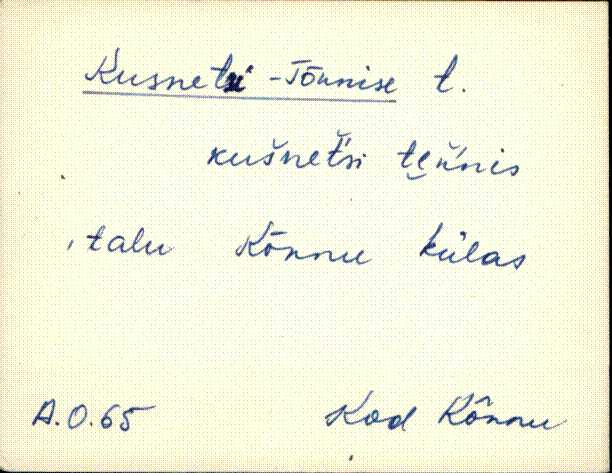 Kusnetsi-Tõnnise t.
kušnet̆'si te̮n̆'nis
, talu Kõnnu külas
A.O.65 Kod Kõnnu